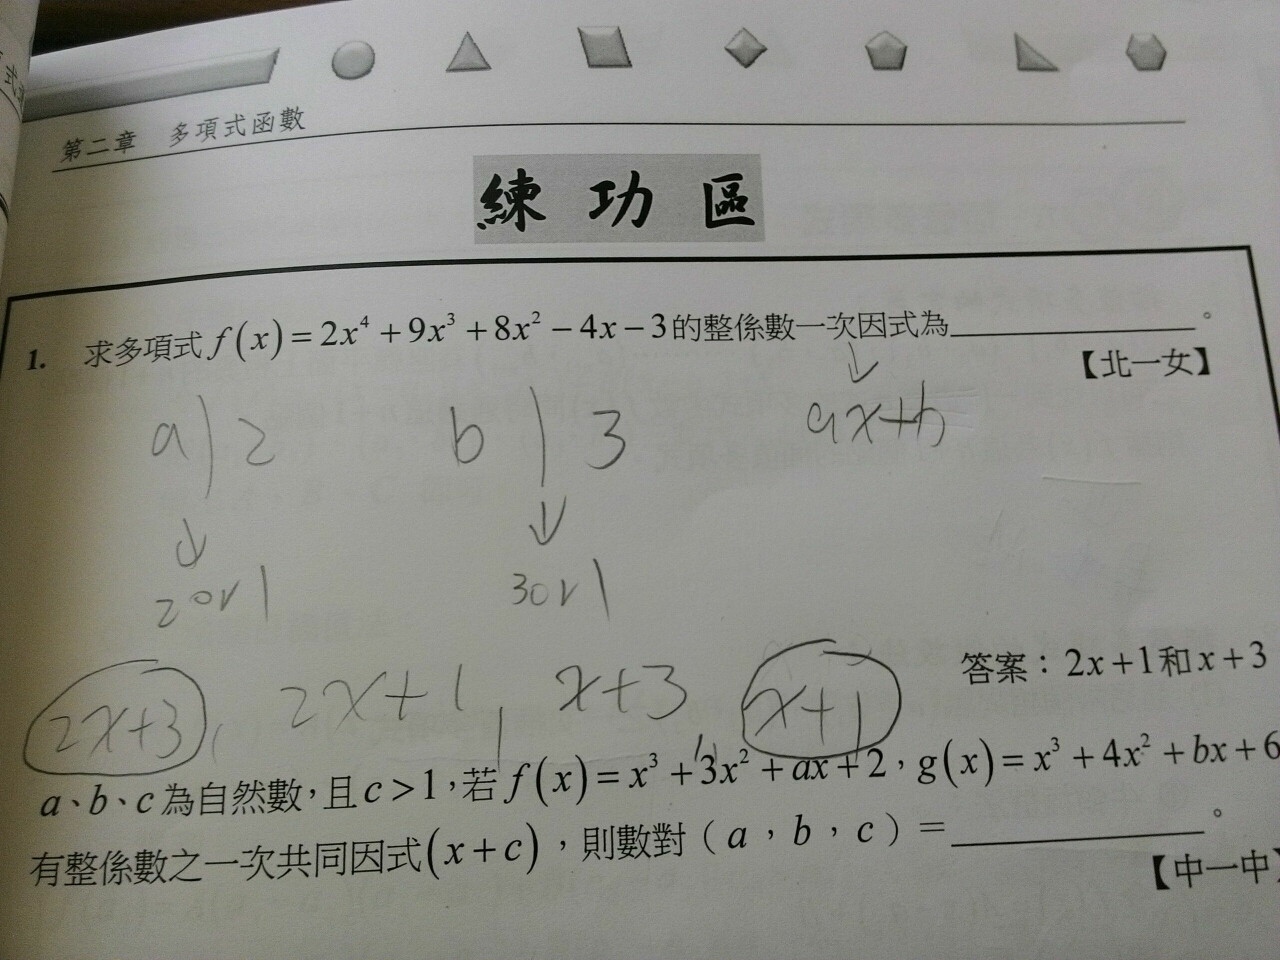 第二章 多項式函數
練功區
1. 求多項式 f(x)=2x⁴+9x³+8x²-4x-3的整係數一次因式為____________。
【北一女】
a|2 b|3 ax+b
↓ ↓
2or1 3or1
答案：2x+1和x+3
2x+3, 2x+1, x+3 x+1
a、b、c為自然數，且c>1，若f(x)=x³+3x²+ax+2，g(x)=x³+4x²+bx+6
有整係數之一次共同因式(x+c)，則數對（a，b，c）=____________。
【中一中】